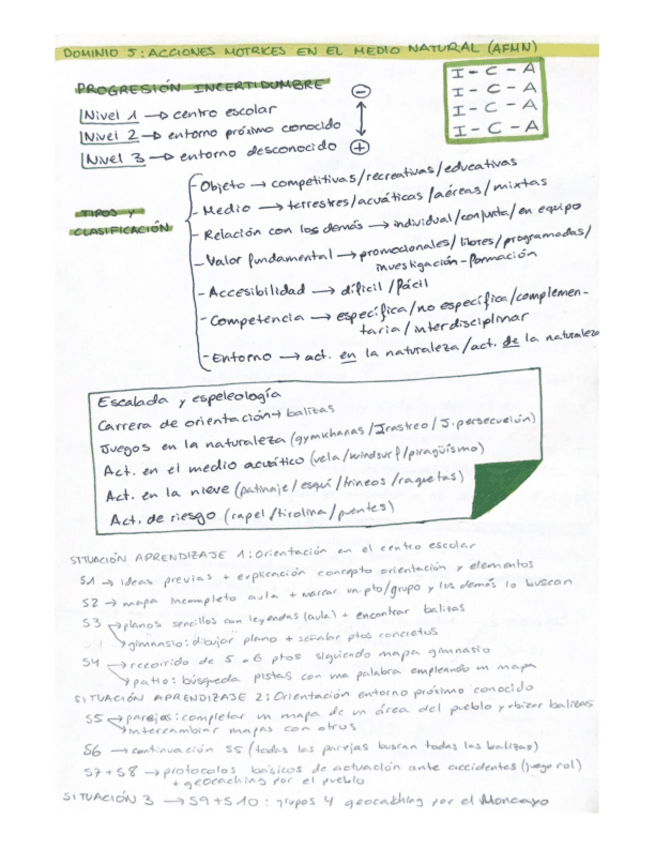 DOMINIO 5: ACCIONES MOTRICES EN EL MEDIO NATURAL (AFMN)
PROGRESIÓN INCERTIDUMBRE
Nivel 1 → centro escolar
Nivel 2 → entorno próximo conocido
Nivel 3 → entorno desconocido
-
+
I - C - A
I - C - A
I - C - A
I - C - A
TIPOS Y
CLASIFICACIÓN
- Objeto → competitivas/recreativas/educativas
- Medio → terrestres/acuáticas/aéreas/mixtas
- Relación con los demás → individual/conjunta/en equipo
- Valor fundamental → promocionales/libres/programadas/
investigación-formación
- Accesibilidad → difícil/fácil
- Competencia → específica/no específica/complemen-
taria/interdisciplinar
- Entorno → act. en la naturaleza/act. de la naturaleza
Escalada y espeleología
Carrera de orientación → balizas
Juegos en la naturaleza (gymkhanas/J.rastreo/J.persecución)
Act. en el medio acuático (vela/windsurf/piragüismo)
Act. en la nieve (patinaje/esquí/trineos/raquetas)
Act. de riesgo (rapel/tirolina/puentes)
SITUACIÓN APRENDIZAJE 1: Orientación en el centro escolar
S1 → ideas previas + explicación concepto orientación y elementos
S2 → mapa incompleto aula + marcar un pto/grupo y los demás lo buscan
S3 → planos sencillos con leyendas (aula) + encontrar balizas
→ gimnasio: dibujar plano + señalar ptos concretos
S4 → recorrido de 5 o 6 ptos siguiendo mapa gimnasio
→ patio: búsqueda pistas con una palabra empleando un mapa
SITUACIÓN APRENDIZAJE 2: Orientación entorno próximo conocido
S5 → parejas: completar un mapa de un área del pueblo y ubicar balizas
→ intercambiar mapas con otros
S6 → continuación S5 (todas las parejas buscan todas las balizas)
S7 + S8 → protocolos básicos de actuación ante accidentes (juego rol)
+ geocaching por el pueblo
SITUACIÓN 3 → S9 + S10: grupos 4 geocaching por el Moncayo